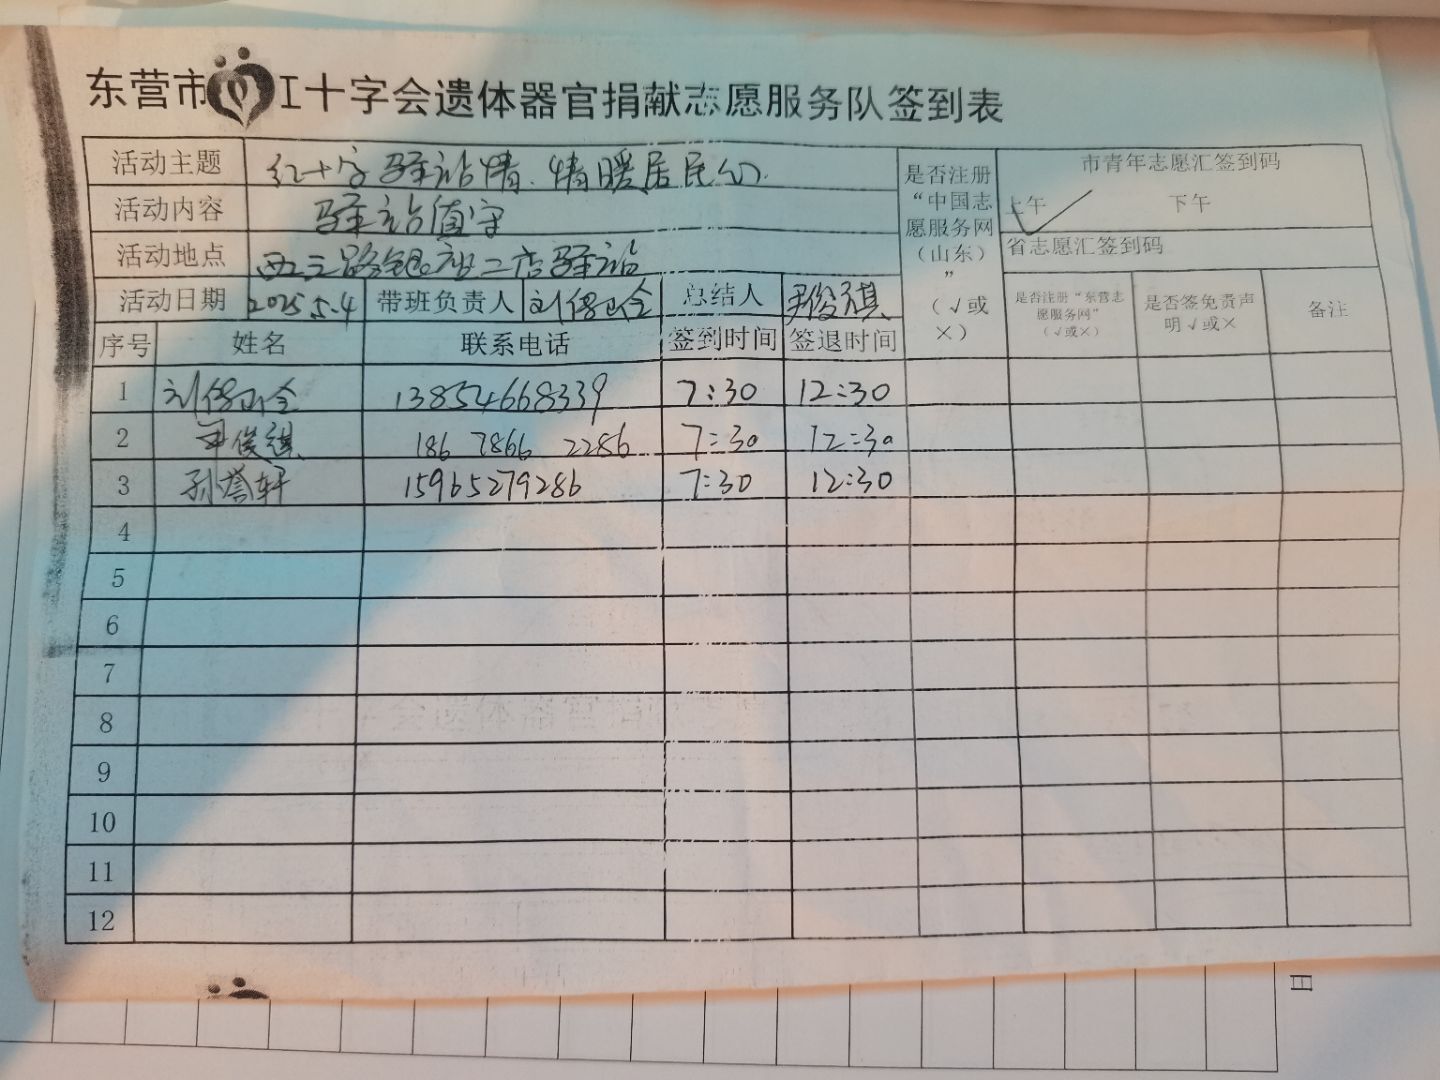 东营市 工十字会遗体器官捐献志愿服务队签到表
活动主题 红十字驿站情.情暖居民心
活动内容 驿站值守
活动地点 西二路银座二店驿站
活动日期 2025.5.4 带班负责人 刘 总结人 尹俊祺
是否注册“中国志愿服务网（山东）”（√或×）
市青年志愿汇签到码
上午 ✓ 下午
省志愿汇签到码
是否注册“东营志愿服务网”（√或×） 是否签免责声明√或× 备注
序号 姓名 联系电话 签到时间 签退时间
1 刘 13854668339 7:30 12:30
2 尹俊祺 186 7866 2286 7:30 12:30
3 孙誉轩 15965279286 7:30 12:30
4
5
6
7
8
9
10
11
12
日